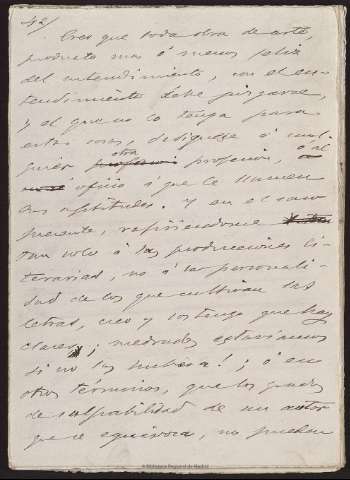 42/
Creo que toda obra de arte,
producto mas ó menos feliz
del entendimiento, con el en-
tendimiento debe juzgarse,
y el que no lo tenga para
estas cosas, dedíquese á cual-
quier otra profesion, ó al
oficio á que le llamen
sus aptitudes. Y en el caso
presente, refiriéndome
tan solo á las producciones li-
terarias, no á la personali-
dad de los que cultivan las
letras, creo y sostengo que hay
clases; medrados estaríamos
si no las hubiera!; ó en
otros términos, que los grados
de culpabilidad de un autor
que se equivoca, no pueden
Biblioteca Regional de Madrid